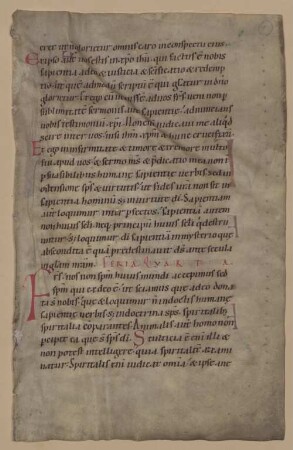 erret ut n̄ glorietur omnis caro in conspectu eius
Ex ipso aut̄ uos estis in xp̄o ih̄u qui factus ē nobis
sapientia a dō & iustitia & sc̄ificatio & redemp
tio ut quē admodū scriptū ē qui gl̄iatur in dn̄o
glorietur. Et ego cū uenissē ad uos fr̄s ueni non p̄
sublimitatē sermonis aut sapientie adnuntians
uobis testimoniū xp̄i. Non eni iudicaui me aliqd
scire inter uos nisi ih̄m xp̄m & hunc crucifixū
Et ego in infirmitate & timore & tremore multo
fui apud uos & sermo ms̄ & p̄dicatio mea non ī
p̄suasibilibus humanę sapientię uerbis sed in
ostensione sp̄s & uirtutis ut fides ur̄a non sit in
sapientia hominū s; in uirtute dī. Sapientiam
aut̄ loquimur inter p̄fectos sapientiā autem
non huius sc̄li neq; principū huius sc̄li q̄ destru
untur s; loquimur dī sapientiā in mysterio que
abscondita ē quā predestinauit ds̄ ante secula
in gl̄iam nr̄am. FERIA QVARTA
Fr̄s nos non sp̄m huius mundi accepimus sed
sp̄m qui ex dō ē ut sciamus que a dō dona
ta s̄ nobis que & loquimur n̄ in doctis humanę
sapientię uerbis s; in doctrina sp̄s spiritalib;
spiritalia cōparantes. Animalis aut̄ homo non
p̄cipit ea que s̄ sp̄s dī. Stultitia ē enī illi &
non potest intellegere quia spiritalit̄ exami
natur. Spiritalis enī iudicat omia & ipse a ne